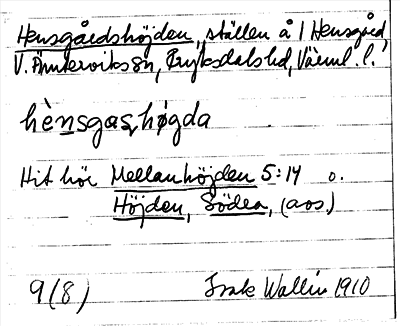 Hensgårdshöjden, ställen å 1 Hensgård,
V. Ämterviks sn, Fryksdals hd, Värml. l.
hènsgas, høgda
Hit hör Mellanhöjden 5:14 o.
Höjden, Södra, (aos)
9(8) Frak Wallin 1910